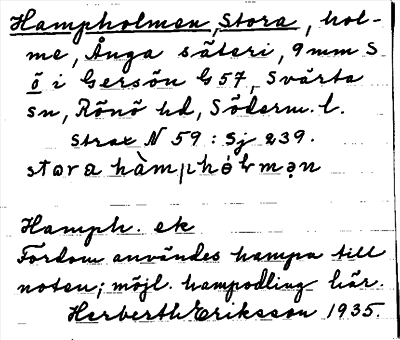 Hampholmen, Stora, hol-
me, Ånga säteri, 9 mm S
ö i Gersön G 57, Svärta
sn, Rönö hd, Söderm. l.
Strax N 59 : Sj 239.
stora hàmphól mən
Hamph. ek
Fordom användes hampa till
noten; möjl. hampodling här.
Herberth Eriksson 1935.